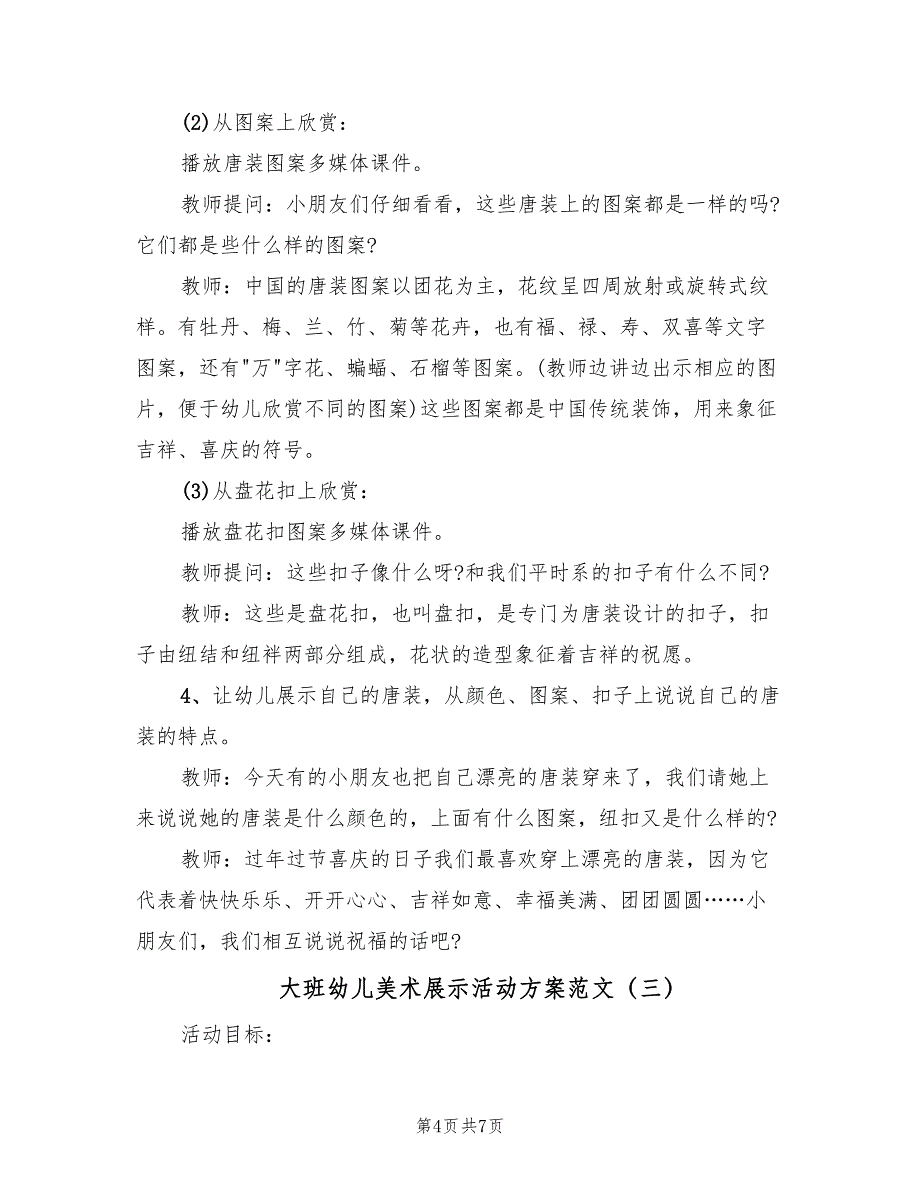 (2)从图案上欣赏：
播放唐装图案多媒体课件。
教师提问：小朋友们仔细看看，这些唐装上的图案都是一样的吗?
它们都是些什么样的图案?
教师：中国的唐装图案以团花为主，花纹呈四周放射或旋转式纹
样。有牡丹、梅、兰、竹、菊等花卉，也有福、禄、寿、双喜等文字
图案，还有"万"字花、蝙蝠、石榴等图案。(教师边讲边出示相应的图
片，便于幼儿欣赏不同的图案)这些图案都是中国传统装饰，用来象征
吉祥、喜庆的符号。
(3)从盘花扣上欣赏：
播放盘花扣图案多媒体课件。
教师提问：这些扣子像什么呀?和我们平时系的扣子有什么不同?
教师：这些是盘花扣，也叫盘扣，是专门为唐装设计的扣子，扣
子由纽结和纽袢两部分组成，花状的造型象征着吉祥的祝愿。
4、让幼儿展示自己的唐装，从颜色、图案、扣子上说说自己的唐
装的特点。
教师：今天有的小朋友也把自己漂亮的唐装穿来了，我们请她上
来说说她的唐装是什么颜色的，上面有什么图案，纽扣又是什么样的?
教师：过年过节喜庆的日子我们最喜欢穿上漂亮的唐装，因为它
代表着快快乐乐、开开心心、吉祥如意、幸福美满、团团圆圆……小
朋友们，我们相互说说祝福的话吧?
大班幼儿美术展示活动方案范文（三）
活动目标：
第4页共7页